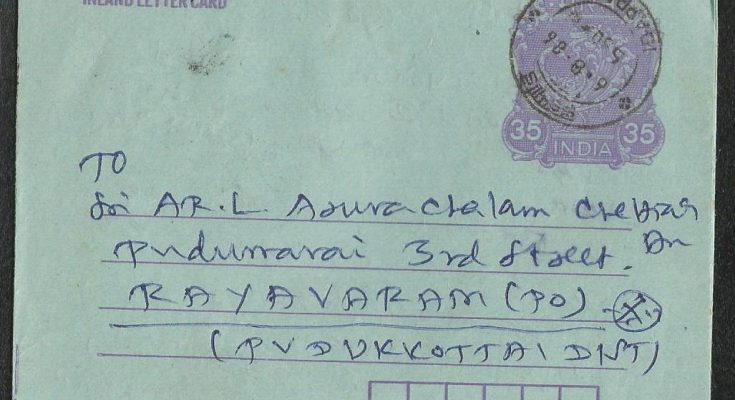 INLAND LETTER CARD
35 INDIA 35
TO
Sri AR.L. Arunachalam Chettiar
3rd Street.
RAYAVARAM (PO)
(PUDUKKOTTAI DIST)